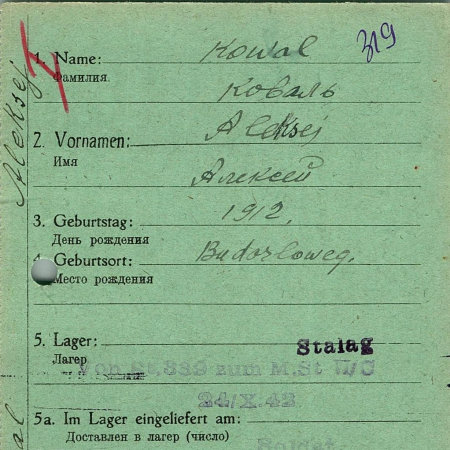 319
1. Name: Kowal
Фамилия Коваль
2. Vornamen: Aleksej
Имя Алексей
3. Geburtstag: 1912.
День рождения
4. Geburtsort:
Место рождения
5. Lager: Stalag
Лагер
zum M.St
24/X.42
5a. Im Lager eingeliefert am:
Доставлен в лагер (число)
Soldat
Aleksej